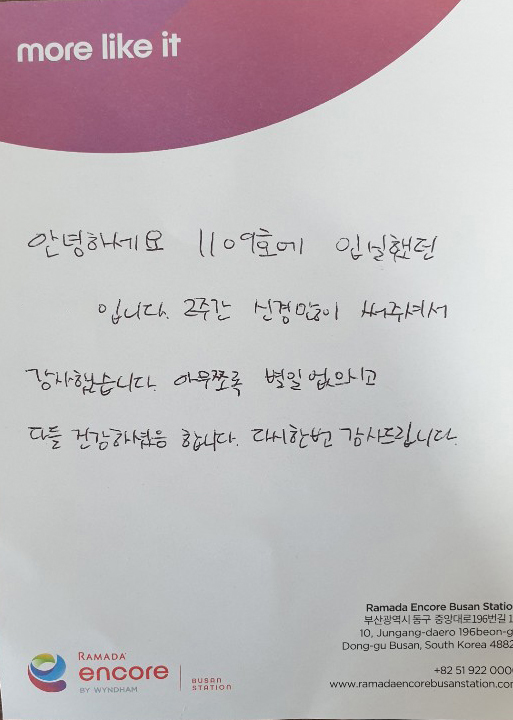 more like it
안녕하세요 1109호에 입실했던
입니다. 2주간 신경많이 써주셔서
감사했습니다. 아무쪼록 별일없으시고
다들 건강하셨음 합니다. 다시한번 감사드립니다.
Ramada Encore Busan Statio
부산광역시 동구 중앙대로196번길 1
10, Jungang-daero 196beon-g
Dong-gu Busan, South Korea 4882
+82 51 922 000
www.ramadaencorebusanstation.com
RAMADA
encore
BY WYNDHAM
BUSAN
STATION